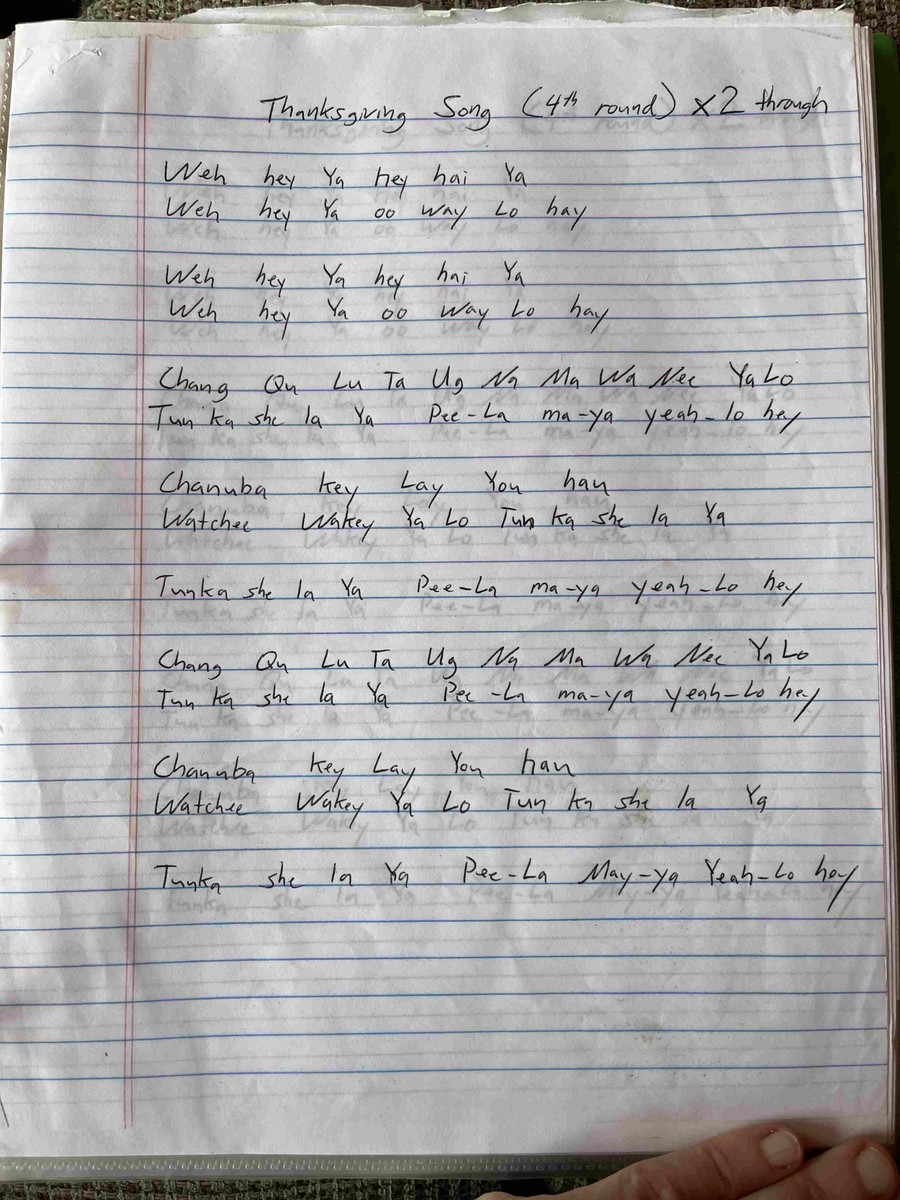 Thanksgiving Song (4th round) x2 through
Weh hey Ya hey hai Ya
Weh hey Ya oo way Lo hay
Weh hey Ya hey hai Ya
Weh hey Ya oo way Lo hay
Chang Qu Lu Ta Ug Na Ma Wa Nee Ya Lo
Tun ka she la Ya Pee-La ma-ya yeah-lo hey
Chanuba key Lay You han
Watchee Wakey Ya Lo Tun ka she la Ya
Tunka she la Ya Pee-La ma-ya yeah-Lo hey
Chang Qu Lu Ta Ug Na Ma Wa Nee Ya Lo
Tun ka she la Ya Pee-La ma-ya yeah-Lo hey
Chanuba key Lay You han
Watchee Wakey Ya Lo Tun ka she la Ya
Tunka she la Ya Pee-La May-ya Yeah-Lo hey